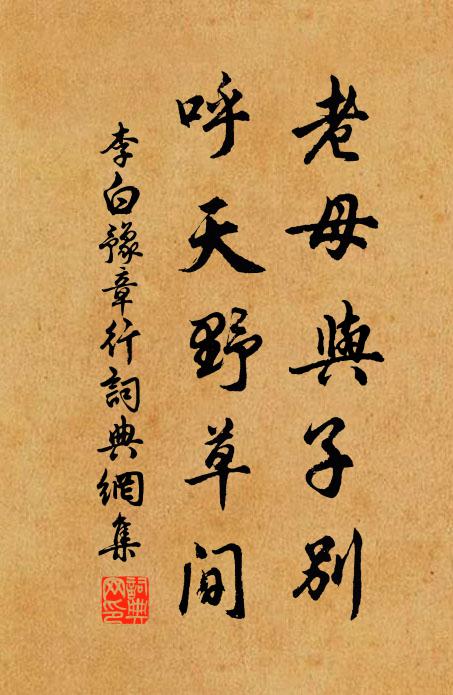 老母與子別
呼天野草間
李白豫章行詞典網集
詞典
网印